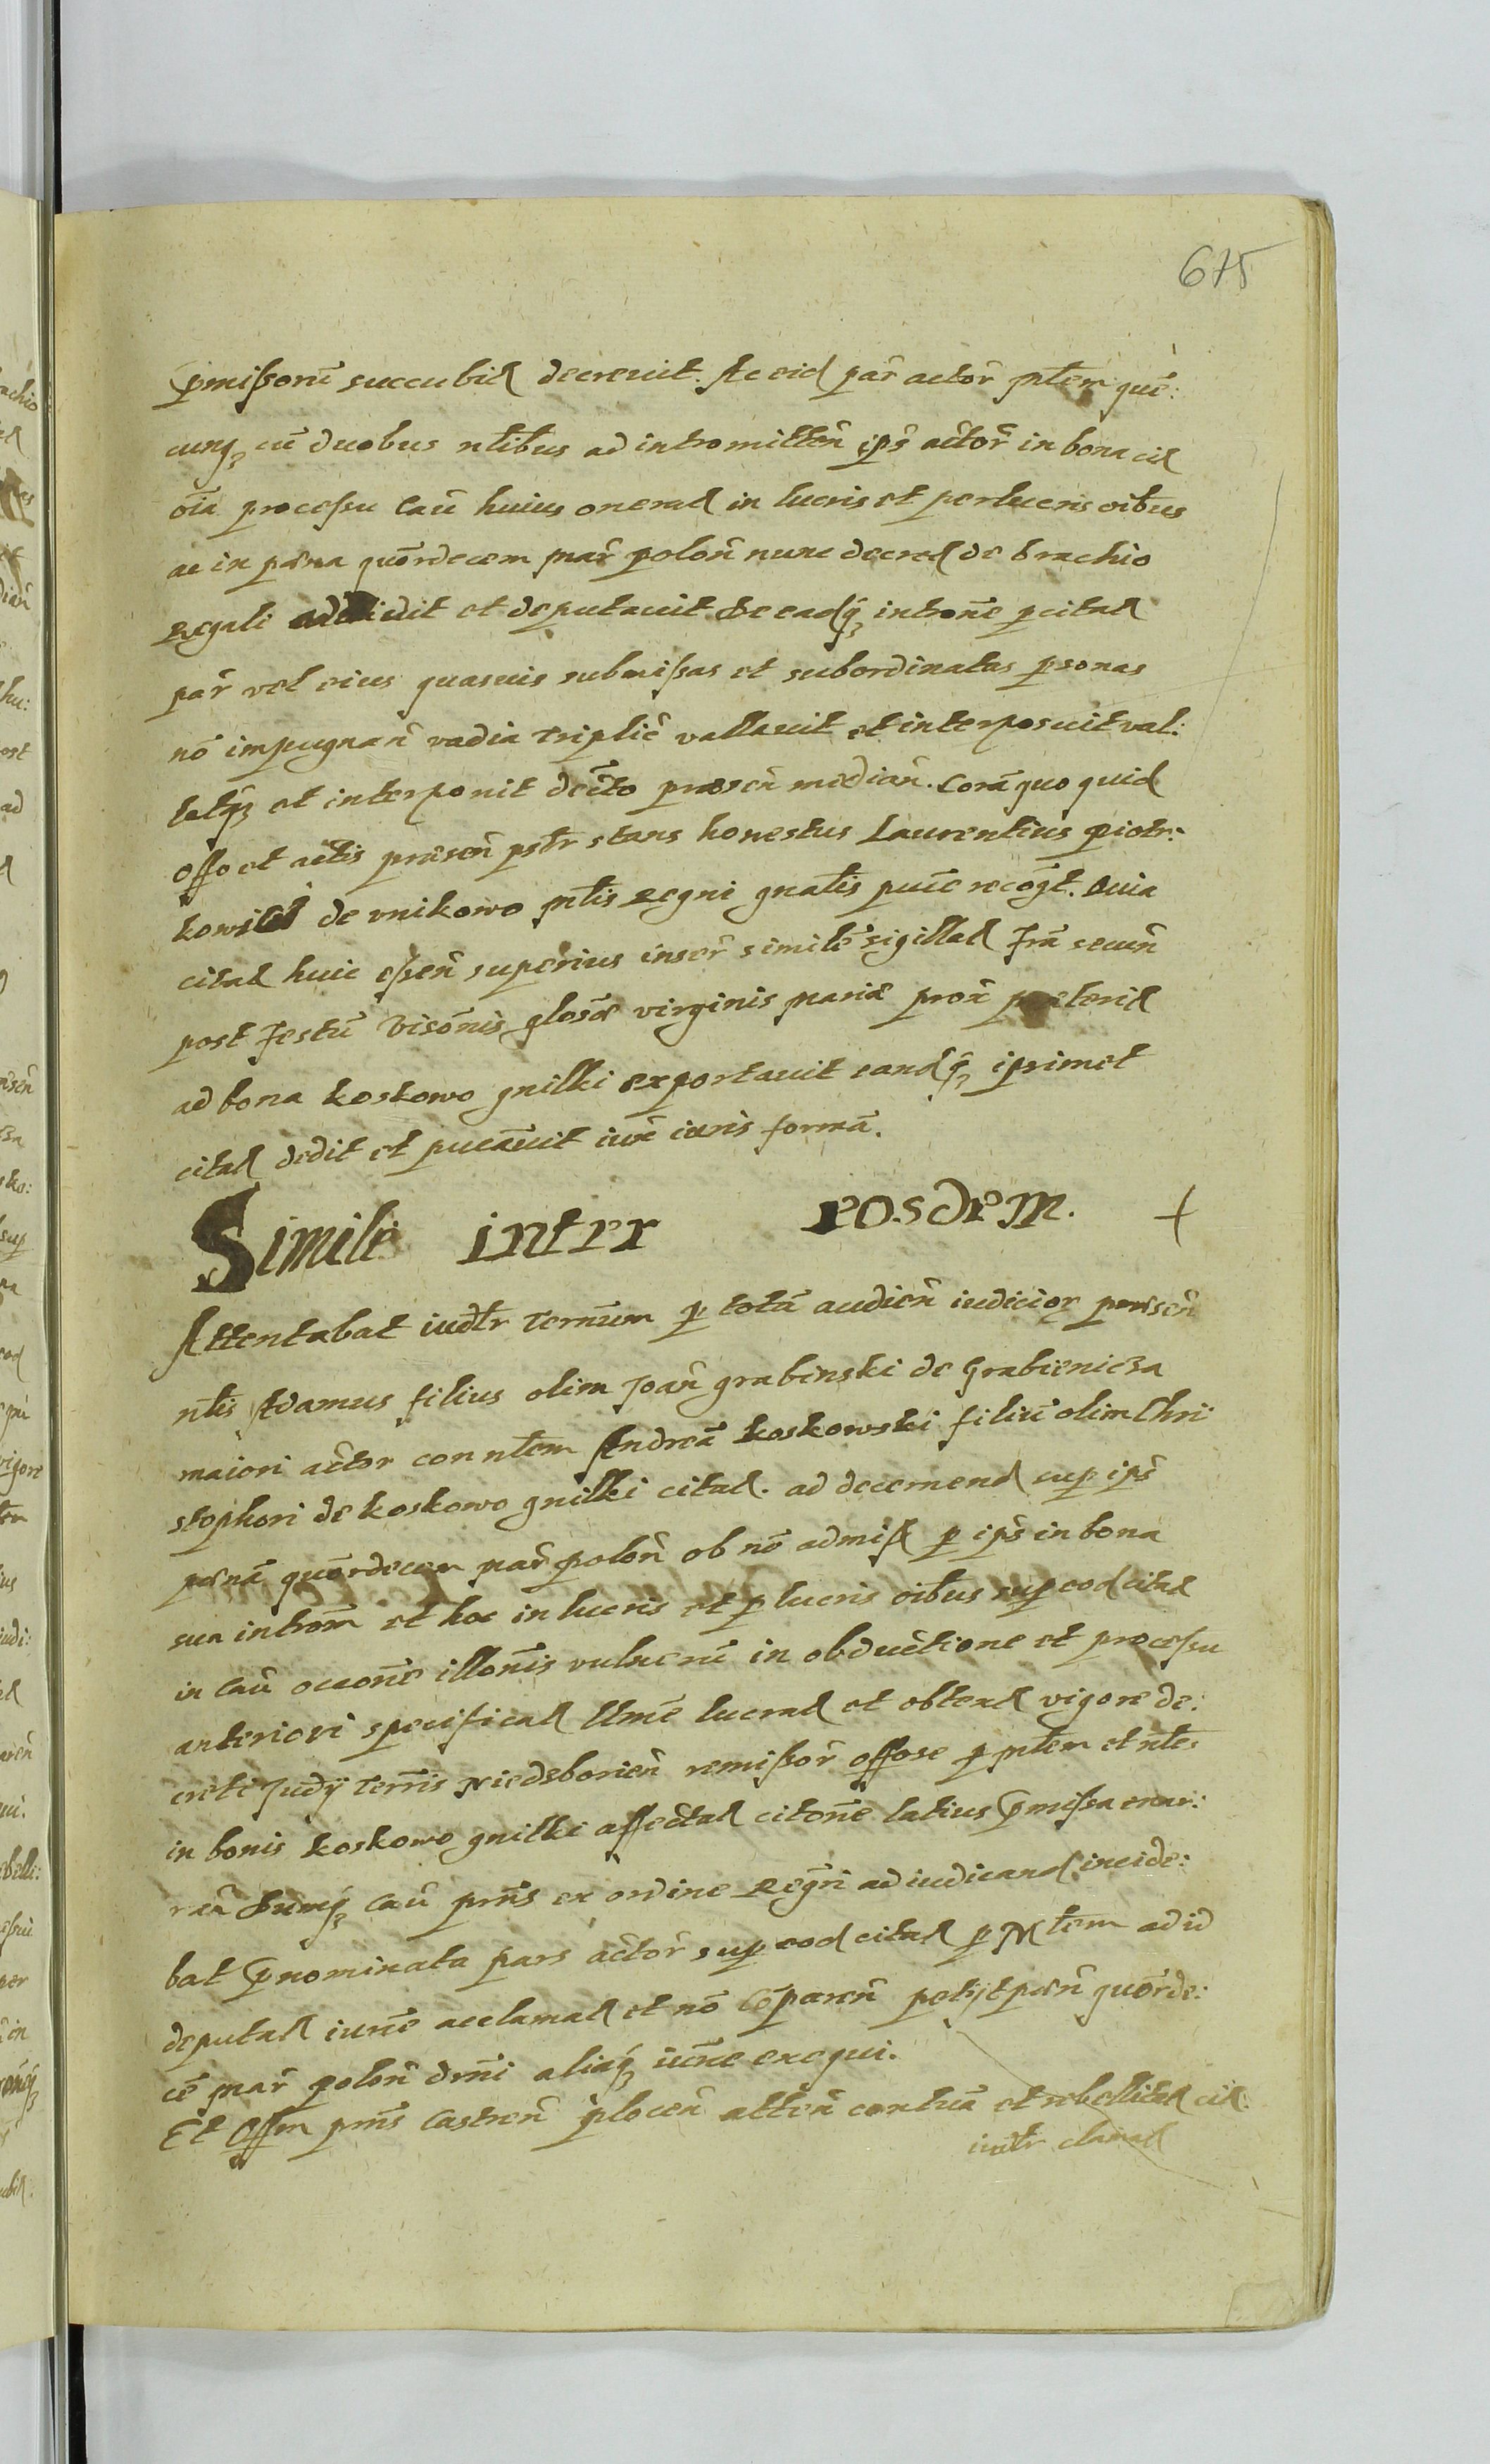 675
p̄mißorū succubiđ decreuit. Ac eiđ par̃ actor̃ mĩtem quē:
cunq; cū duobus nłibus ad intromitteñ ips̃ actor̃ in bona ciđ
oĩa proceßu Cau͂ huius oneratđ in lucris et perlucris oĩbus
ac in pœna quōrdecem mar̃ poloñ nunc decretđ de brachio
Regali addidit et deputauit De eadq; introñe p citatđ
par̃ vel eius quasuis submißas et subordinatas personas
nō impugnañ vadia triplic̃ vallauit et interposuit val:
latq; et interponit decr̃to præseñ mediañ. Corā quo quiđ
offo et actis præseñ psłr stans honestus Laurentius piotr:
kowicz de vnikowo mĩtis Regni gnãlis puĩc recōg̃t. Quia
citatđ huic eßeñ superius inser̃ similē sigillatđ fr̃ia secuñ
post festū Visōnis glosæ virginis mariæ prox̃ præteriđ
ad bona koskowo gnilki exportauit eandq; iprimet
citatđ dedit et pucauit iux̃ iuris formā.
Simile inter eosdem. +
Attentabat iudłr Termũm p totā audieñ iudicior̃ præseñ
nłis Adamus filius olim Joañ grabinski de Grabienicza
maiori actor con nłem Andreā koskowski filiū olim Chri
stophori de koskowo gnilki citatđ. ad decernenđ sup ips̃
pœnā quōrdecem mar̃ poloñ ob nō admiß p ips̃ in bona
sua introm̃ et hoc in lucris et p lucris oĩbus sup eođ citatđ
in Cau͂ occoñe illoñis vulnerū in obductione et proceßu
anteriori specificatđ łłme lucratđ et obtentđ vigore de:
creti Judÿ terr̃is Niedzborieñ remißor̃ offose p mĩtem et nłes
in bonis koskowo gnilki affectatđ citoñe latius p̄mißa enar:
rañ Dumq; Cau͂ pm̃s ex ordine Regr̃i ad iudicanđ incide:
bat p̄nominata pars actor̃ sup eođ citatđ p Mtem ad id
deputatđ iur̃ne acclamatđ et nō cōpareñ petÿt pœñ quōrde:
cē mar̃ poloñ dr̃ni aliaq; iur̃ne exequi.
Et Offm pm̃s Castreñ ploceñ atteñ contuā et rebellitatđ ciđ:
iudłr clamatđ